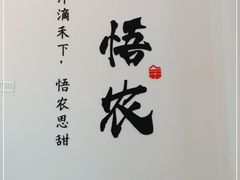 悟农
滴禾下，悟农思甜